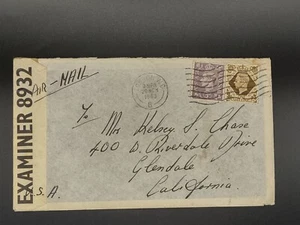 EXAMINER 8932
AIR-MAIL
To
Mr Kelsey S. Chase
400 D. Riverdale Drive
Glendale
California
U.S.A.